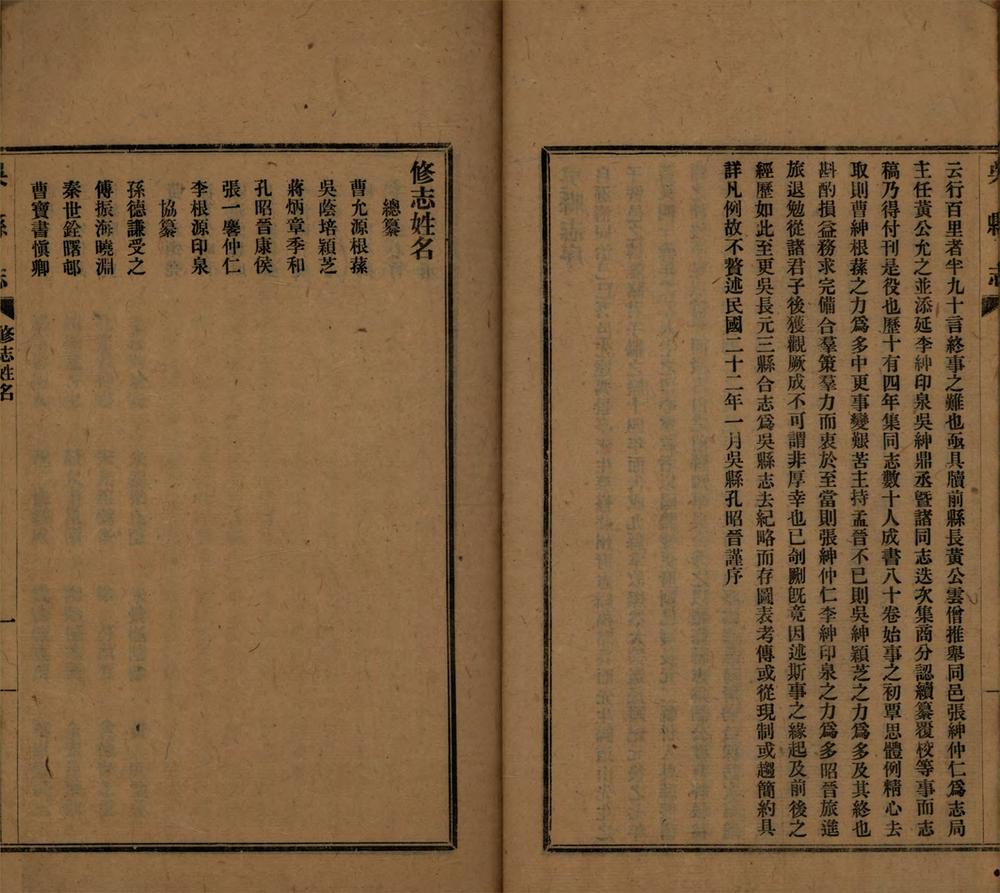 吳縣志
一
云行百里者半九十言終事之難也亟具牘前縣長黃公雲僧推舉同邑張紳仲仁爲志局
主任黃公允之並添延李紳印泉吳紳鼎丞曁諸同志迭次集商分認續纂覆校等事而志
稿乃得付刊是役也歷十有四年集同志數十人成書八十卷始事之初覃思體例精心去
取則曹紳根蓀之力爲多中更事變艱苦主持孟晉不已則吳紳穎芝之力爲多及其終也
斟酌損益務求完備合羣策羣力而衷於至當則張紳仲仁李紳印泉之力爲多昭晉旅進
旅退勉從諸君子後獲觀厥成不可謂非厚幸也已剞劂旣竟因述斯事之緣起及前後之
經歷如此至更吳長元三縣合志爲吳縣志去紀略而存圖表考傳或從現制或趨簡約具
詳凡例故不贅述民國二十二年一月吳縣孔昭晉謹序
修志姓名
總纂
曹允源根蓀
吳蔭培穎芝
蔣炳章季和
孔昭晉康侯
張一麐仲仁
李根源印泉
協纂
孫德謙受之
傅振海曉淵
秦世銓曙邨
曹寶書愼卿
吳縣志
修志姓名
一